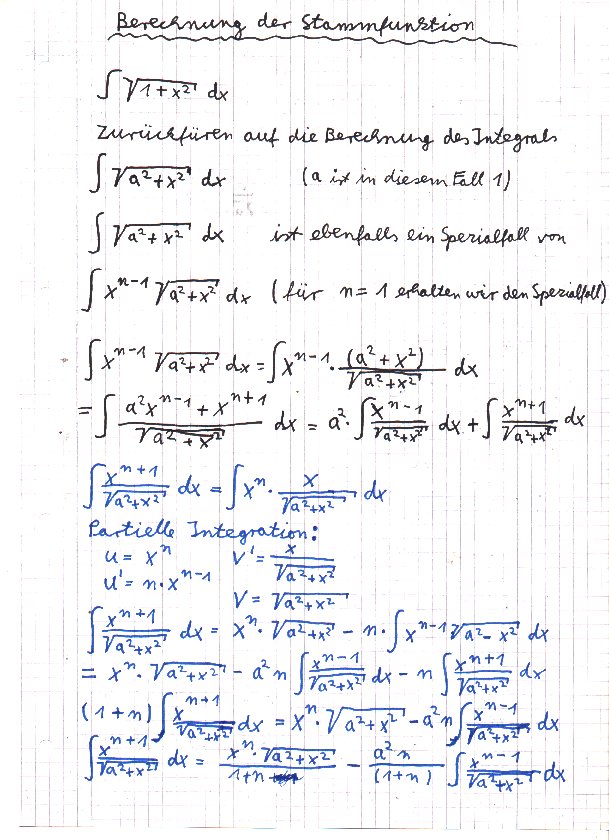 Berechnung der Stammfunktion
∫ √(1+x²) dx
Zurückfüren auf die Berechnung des Integrals
∫ √(a²+x²) dx (a ist in diesem Fall 1)
∫ √(a²+x²) dx ist ebenfalls ein Spezialfall von
∫ xⁿ⁻¹ √(a²+x²) dx (für n=1 erhalten wir den Spezialfall)
∫ xⁿ⁻¹ √(a²+x²) dx = ∫ xⁿ⁻¹ · (a²+x²)/√(a²+x²) dx
= ∫ (a²xⁿ⁻¹ + xⁿ⁺¹)/√(a²+x²) dx = a² · ∫ xⁿ⁻¹/√(a²+x²) dx + ∫ xⁿ⁺¹/√(a²+x²) dx
∫ xⁿ⁺¹/√(a²+x²) dx = ∫ xⁿ · x/√(a²+x²) dx
Partielle Integration:
u = xⁿ v' = x/√(a²+x²)
u' = n·xⁿ⁻¹
v = √(a²+x²)
∫ xⁿ⁺¹/√(a²+x²) dx = xⁿ · √(a²+x²) - n · ∫ xⁿ⁻¹ √(a²-x²) dx
= xⁿ · √(a²+x²) - a²n ∫ xⁿ⁻¹/√(a²+x²) dx - n ∫ xⁿ⁺¹/√(a²+x²) dx
(1+n) ∫ xⁿ⁺¹/√(a²+x²) dx = xⁿ · √(a²+x²) - a²n ∫ xⁿ⁻¹/√(a²+x²) dx
∫ xⁿ⁺¹/√(a²+x²) dx = xⁿ · √(a²+x²)/(1+n) - a²n/(1+n) ∫ xⁿ⁻¹/√(a²+x²) dx